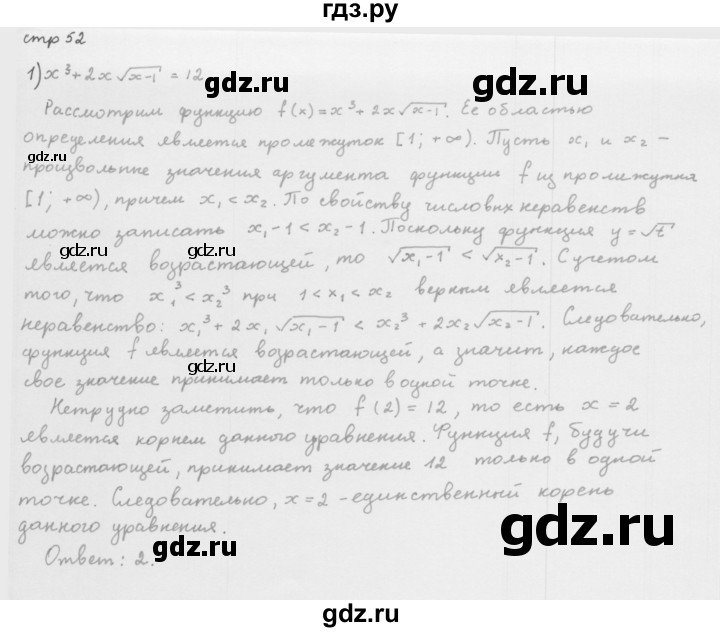 гдз.ру
стр 52
1) x³ + 2x√(x-1) = 12
gdz.ru
Рассмотрим функцию f(x) = x³ + 2x√(x-1). Её областью
gdz.ru
определения является промежуток [1; +∞). Пусть x₁ и x₂ –
gdz.ru
произвольные значения аргумента функции f из промежутка
[1; +∞), причем x₁ < x₂. По свойству числовых неравенств
можно записать x₁-1 < x₂-1. Поскольку функция y = √t
gdz.ru gdz.ru
является возрастающей, то √(x₁-1) < √(x₂-1). С учетом
того, что x₁³ < x₂³ при 1 < x₁ < x₂ верным является
неравенство: x₁³ + 2x₁√(x₁-1) < x₂³ + 2x₂√(x₂-1). Следовательно,
функция f является возрастающей, а значит, каждое
gdz.ru gdz.ru
свое значение принимает только в одной точке.
Нетрудно заметить, что f(2) = 12, то есть x = 2
является корнем данного уравнения. Функция f, будучи
возрастающей, принимает значение 12 только в одной
точке. Следовательно, x = 2 – единственный корень
данного уравнения.
gdz.ru
gdz.ru
Ответ: 2.
gdz.ru